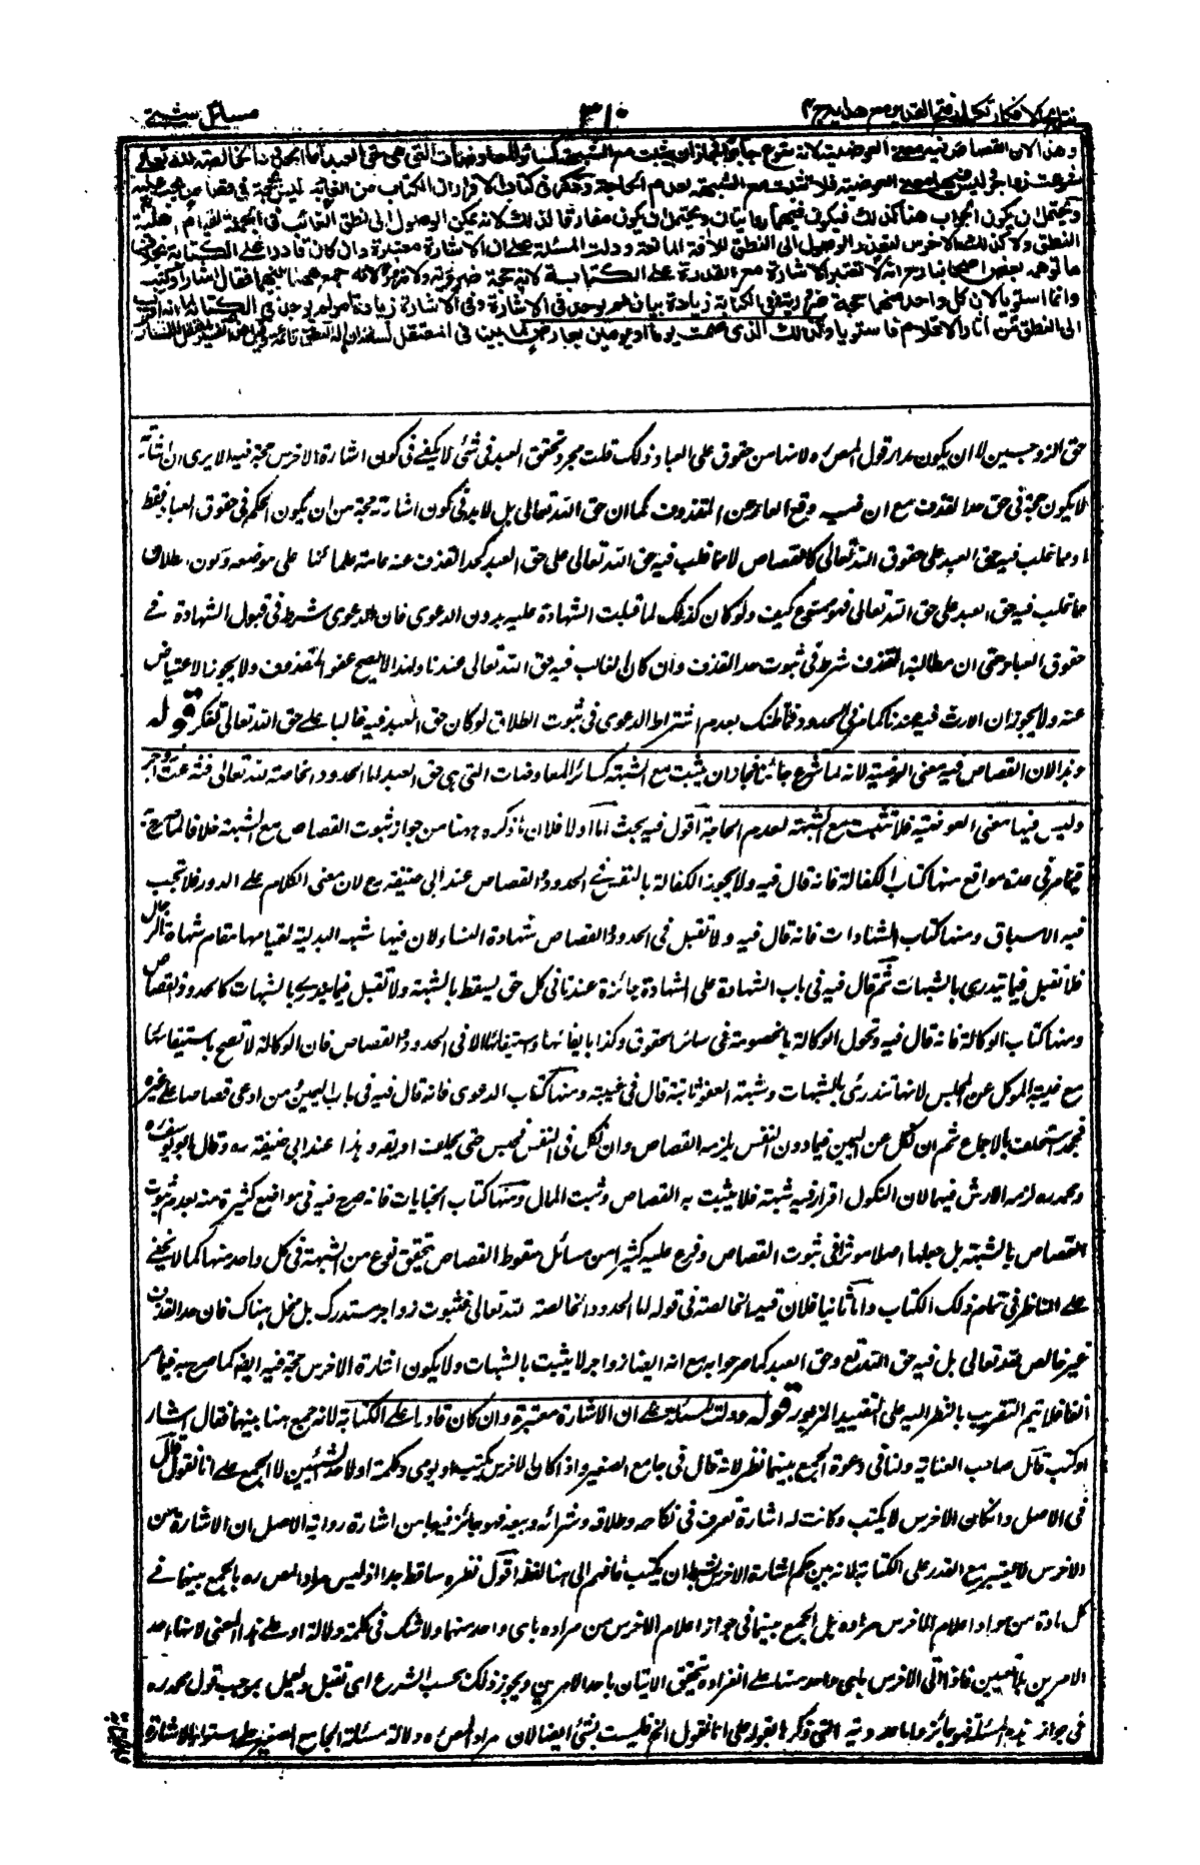 نتائج الافكار تكملة فتح القدير مع هداية ج ٤
٣١٠
مسائل شتى
وهذا لان القصاص فيه معنى العوضية لانه شرع جابرا فجاز ان يثبت مع الشبهة كسائر المعاوضات التي هي حق العبد اما الحدود الخالصة لله تعالى
شرعت زواجر وليس فيها معنى العوضية فلا تثبت مع الشبهة لعدم الحاجة وذكر في كتاب الاقرار ان الكتاب من الغائب ليس بحجة في قصاص يجب عليه
ويحتمل ان يكون الجواب هنا كذلك فيكون فيهما روايتان ويحتمل ان يكون مفارقا لذلك لانه يمكن الوصول الى نطق الغائب في الجملة لقيام اهلية
النطق ولا كذلك الاخرس لتعذر الوصول الى النطق للآفة المانعة ودلت المسئلة على ان الاشارة معتبرة وان كان قادرا على الكتابة بخلاف
ما توهمه بعض اصحابنا رح انه لا تعتبر الاشارة مع القدرة على الكتابة لانه حجة ضرورية ولا ضرورة لانه جمع ههنا بينهما فقال اشار او كتب
وانما استويا لان كل واحد منهما حجة ضرورية وفي الكتابة زيادة بيان لم يوجد في الاشارة وفي الاشارة زيادة اثر لم يوجد في الكتابة لما انه اقرب
الى النطق من آثار الاقلام فاستويا وكذلك الذي صمت يوما او يومين بعارض لما بينا في المعتقل لسانه
حق الزوجين لا ان يكون مدار قول المص ره لانها من حقوق على العباد ذلك قلت مجرد تحقق العبد في شئ لا يكفى في كون اشارة الاخرس حجة فيه الا يرى ان اشارته
لا يكون حجة في حق حد القذف مع ان فيه دفع العار عن المقذوف كما ان حق الله تعالى بل لا بد في كون اشارته حجة من ان يكون الحكم في حقوق العباد فقط
او مما غلب فيه حق العبد على حقوق الله تعالى كالقصاص لا مما غلب فيه حق الله تعالى على حق العبد كحد القذف عند عامة علمائنا على موضعه وكون الطلاق
مما غلب فيه حق العبد على حق الله تعالى فهو ممنوع كيف ولو كان كذلك لما قبلت الشهادة عليه بدون الدعوى فان الدعوى شرط في قبول الشهادة في
حقوق العباد حتى ان مطالبة المقذوف شرط في ثبوت حد القذف وان كان الغالب فيه حق الله تعالى عندنا ولهذا لا يصح عفو المقذوف ولا يجوز الاعتياض
عنه ولا يجوز ان الارث فيه عندنا كما مر في الحدود فما ظنك بعدم اشتراط الدعوى في ثبوت الطلاق لو كان حق العبد فيه غالبا على حق الله تعالى تفكر قوله
وهذا لان القصاص فيه معنى العوضية لانه لما شرع جابرا فجاز ان يثبت مع الشبهة كسائر المعاوضات التي هي حق العبد اما الحدود الخالصة لله تعالى فشرعت زواجر
وليس فيها معنى العوضية فلا تثبت مع الشبهة لعدم الحاجة اقول فيه بحث اما اولا فلان ما ذكره ههنا من جواز ثبوت القصاص مع الشبهة مخالف لما صرح به
فيما مر في عدة مواقع منها كتاب الكفالة فانه قال فيه ولا يجوز الكفالة بالنفس في الحدود والقصاص عند ابي حنيفة رح لان معنى الكلام على الدرء فلا يجب
فيه الاستيثاق ومنها كتاب الشهادات فانه قال فيه ولا تقبل في الحدود والقصاص شهادة النساء لان فيها شبهة البدلية لقيامها مقام شهادة الرجال
فلا تقبل فيما يندرئ بالشبهات ثم قال فيه في باب الشهادة على الشهادة جائزة عندنا في كل حق لا يسقط بالشبهة ولا تقبل فيما يندرئ بالشبهات كالحدود والقصاص
ومنها كتاب الوكالة فانه قال فيه وتجوز الوكالة بالخصومة في سائر الحقوق وكذا بايفائها واستيفائها الا في الحدود والقصاص فان الوكالة لا تصح باستيفائها
مع غيبة الموكل عن المجلس لانها تندرئ بالشبهات وشبهة العفو ثابتة قال في غيبته ومنها كتاب الدعوى فانه قال فيه في باب اليمين ومن ادعى قصاصا على غيره
فجحد استحلف بالاجماع ثم ان نكل عن اليمين فيما دون النفس يلزمه القصاص وان نكل في النفس حبس حتى يحلف او يقر وهذا عند ابي حنيفة ره وقال ابو يوسف ره
ومحمد ره لزمه الارش فيهما لان النكول اقرار فيه شبهة فلا يثبت به القصاص وثبت المال ومنها كتاب الجنايات فانه صرح فيه في مواضع كثيرة منه بعدم ثبوت
القصاص بالشبهة بل جعلها اصلا مؤثرا في ثبوت القصاص وفرع عليه كثيرا من مسائل سقوط القصاص بتحقيق نوع من الشبهة في كل واحد منها كما لا يخفى
على الناظر في تمام ذلك الكتاب واما ثانيا فلان قيد الخالصة في قوله اما الحدود الخالصة لله تعالى فثبوت زواجر مستدرك بل مخل هناك فان حد القذف
غير خالص لله تعالى بل فيه حق الله تع وحق العبد كما صرحوا به مع انه ايضا زواجر لا يثبت بالشبهات ولا يكون اشارة الاخرس حجة فيه ايضا كما صرح به فيما مر
انفا فلا يتم التقريب بالنظر اليه على التقييد المزبور قوله ودلت المسئلة على ان الاشارة معتبرة وان كان قادرا على الكتابة لانه جمع هنا بينهما فقال اشار
او كتب قال صاحب العناية ولنا في دعوة الجمع بينهما نظر لانه قال في جامع الصغير واذا كان الاخرس يكتب او يومى وكلمة او لاحد الشيئين لا الجمع على انا نقول قال
في الاصل وان كان الاخرس لا يكتب وكانت له اشارة تعرف في نكاحه وطلاقه وشرائه وبيعه فهو جائز فيعلم من اشارة رواية الاصل ان الاشارة من
الاخرس لا يعتبر مع القدرة على الكتابة لانه بين حكم اشارة الاخرس بشرط ان لا يكتب فافهم الى هنا لفظه اقول نظره ساقط جدا اذ ليس مراد المص ره بالجمع بينهما في
كل مادة من مواد اعلام الاخرس مراده بل الجمع بينهما في جواز اعلام الاخرس من مراده باى واحد منهما ولا شك في كلمة ولالة او على هذا المعنى لانها لاحد
الامرين بلا تعيين فاذا اتى الاخرس باى واحد منهما على انفراده يتحقق الاتيان باحد الامرين ويجوز ذلك بحسب الشرع اى تقبل ويعمل بموجب قول محمد ره
في جواز هذه المسئلة فهو جائز واما على انا نقول الخ فليست بشئ ايضا لان مراد المص ره دلالة مسئلة الجامع الصغير على استواء الاشارة